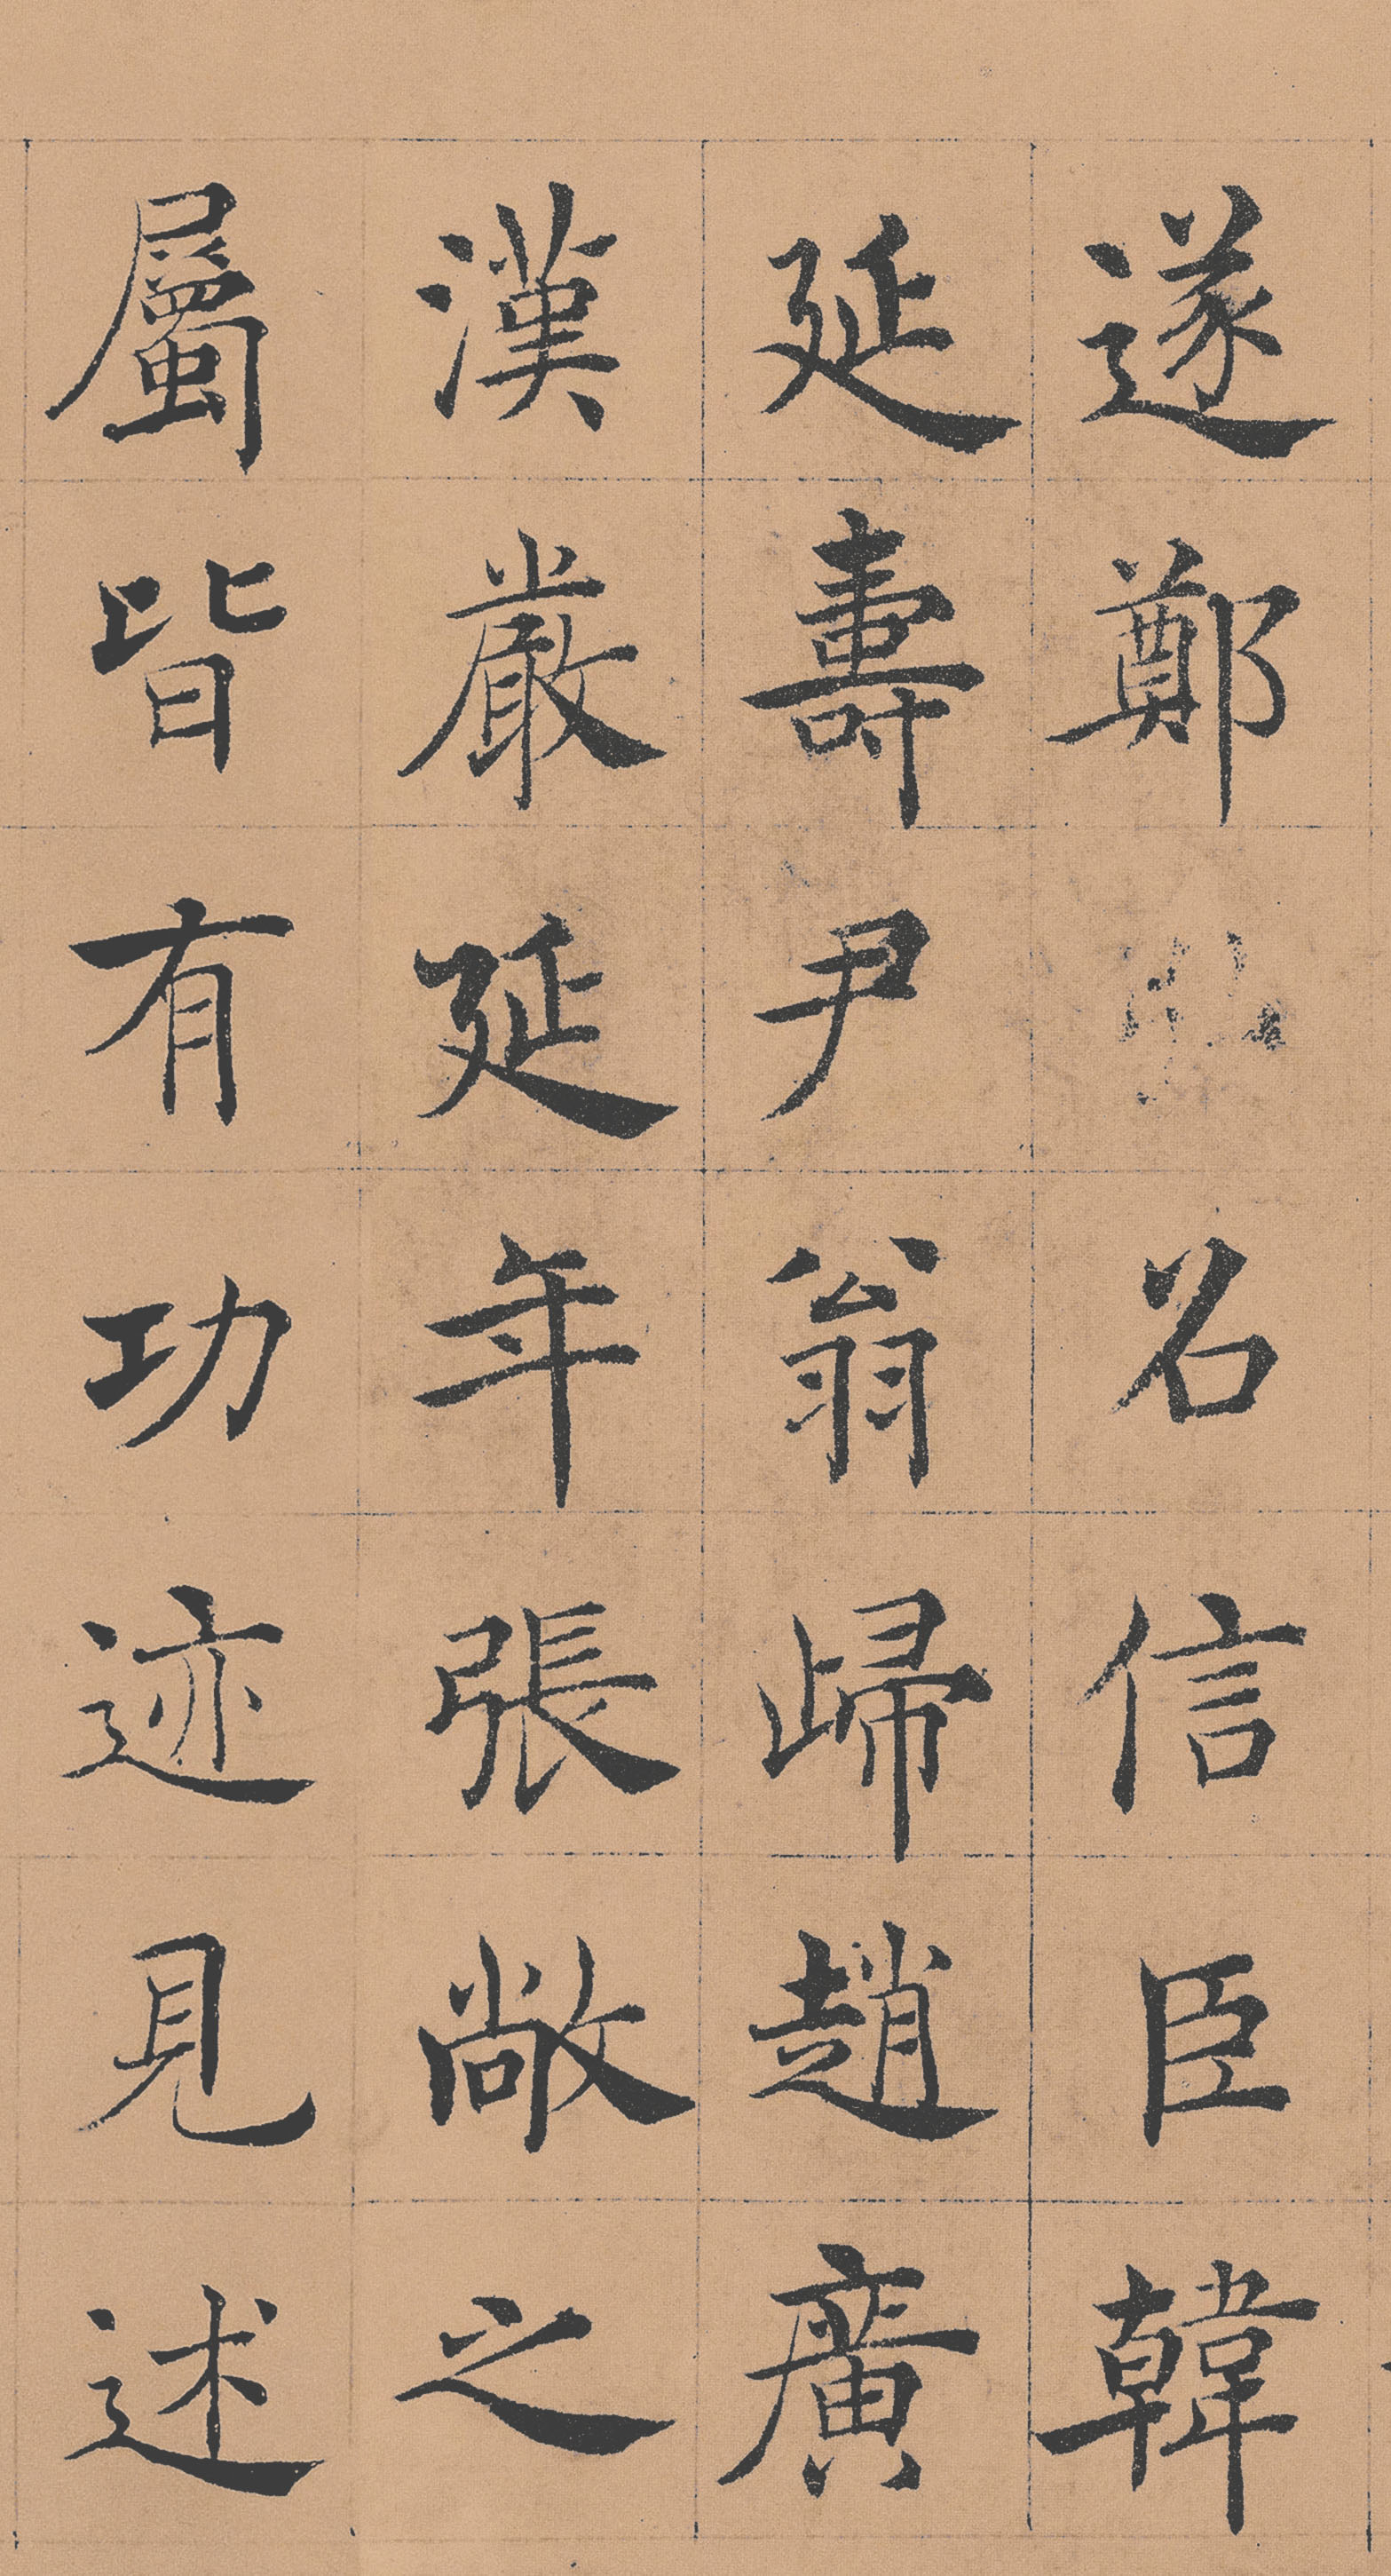 遂鄭召信臣韓
延壽尹翁歸趙廣
漢嚴延年張敞之
屬皆有功迹見述